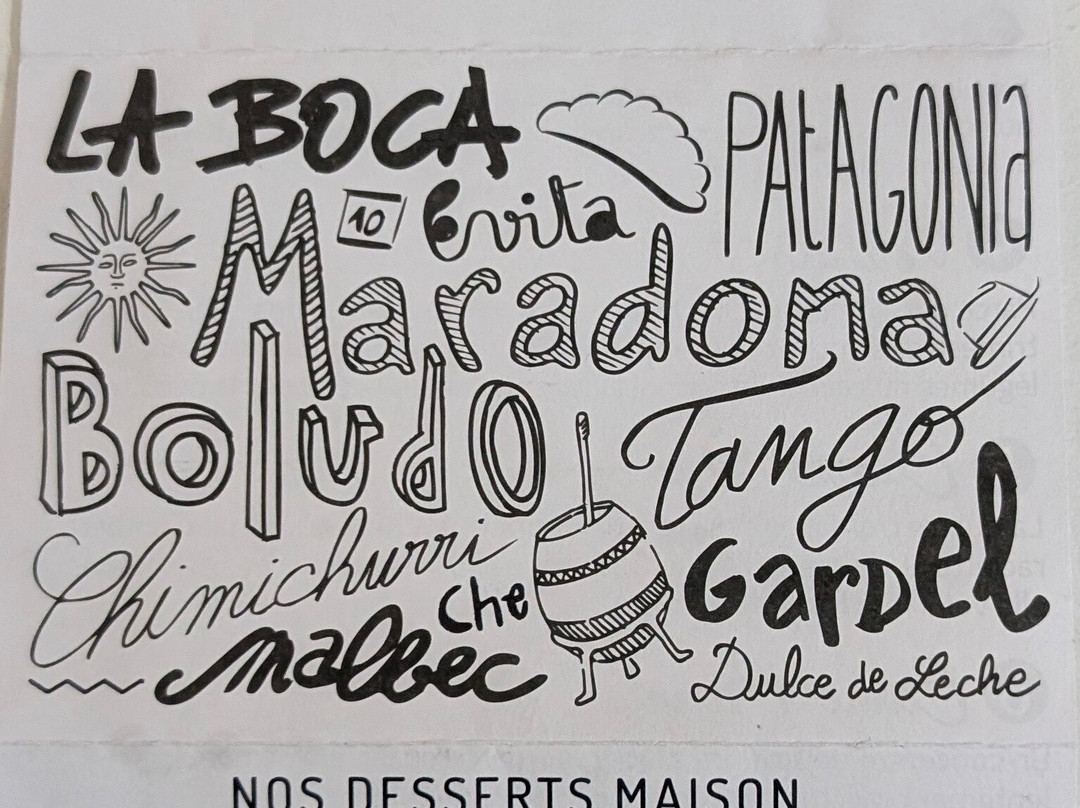 LA BOCA
PAtAGONIa
10
Evita
Maradona
Boludo
Tango
Chimichurri
Che
Gardel
malbec
Dulce de Leche
NOS DESSERTS MAISON